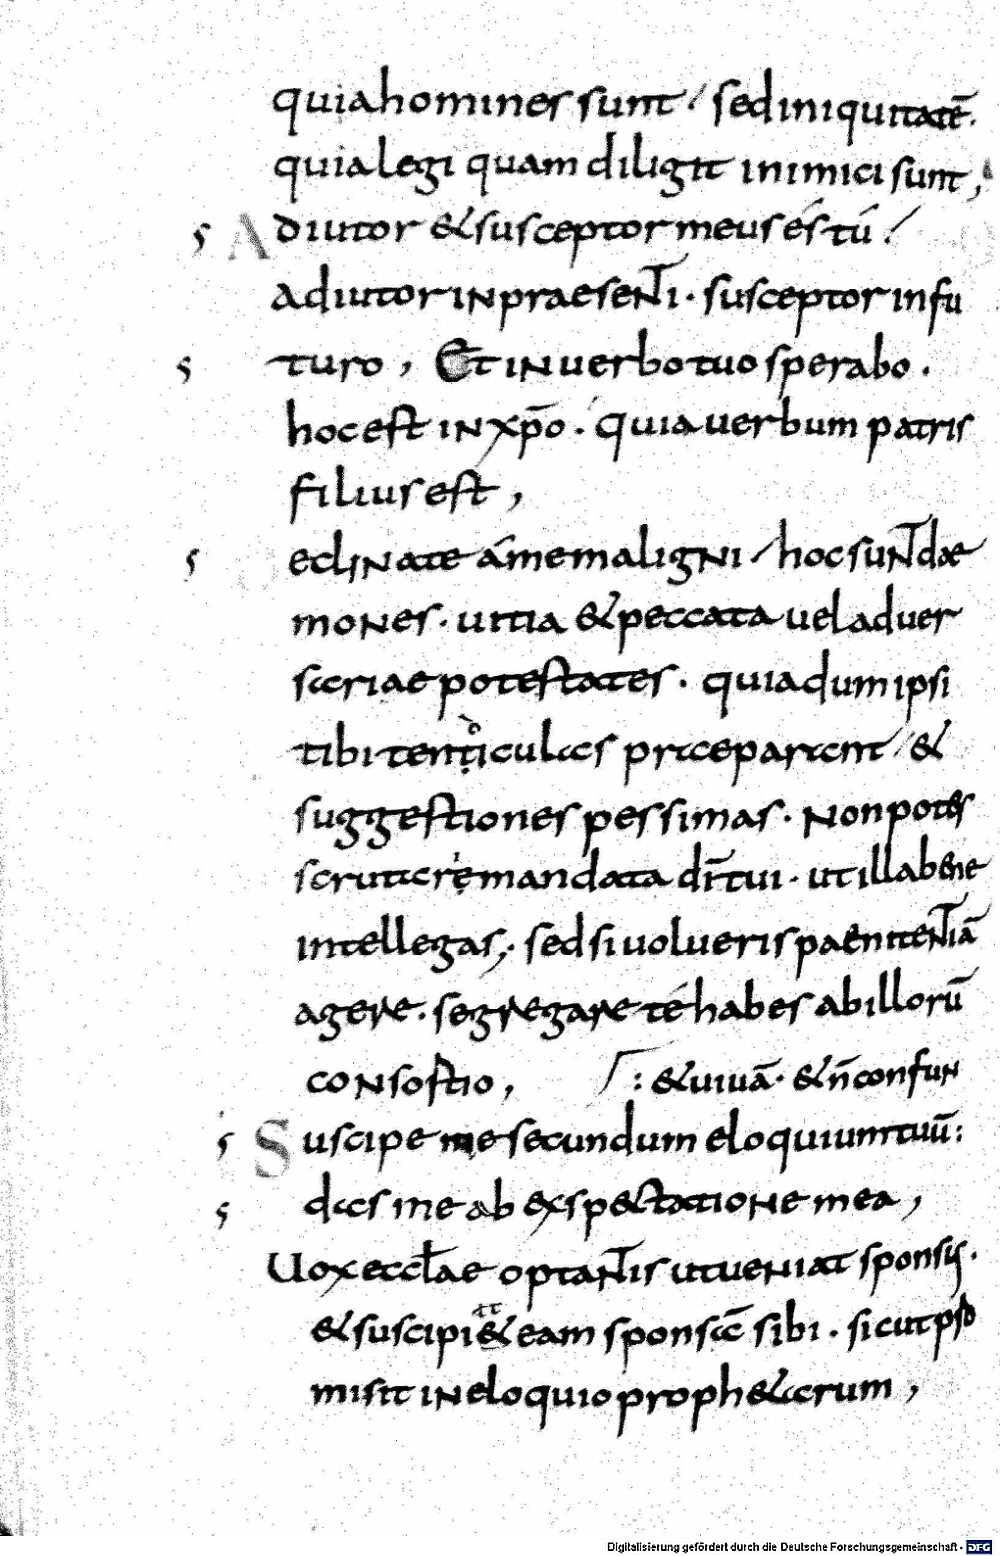 quia homines sunt / sed iniquitatē.
quia legi quam diligit inimici sunt,
Adiutor & susceptor meus és tú /
adiutor in praesenti. susceptor in fu
turo, Et in uerbo tuo sperabo.
hoc est in xp̄o. quia uerbum patris
filius est,
eclinate á me maligni / hoc sunt dae
mones. uitia & peccata uel aduer
sariae potestates. quia dum ipsi
tibi tenticulas praeparant / &
suggestiones pessimas. Non potes
scrutare mandata dī tui. ut illa bene
intellegas; sed si uolueris paenitentiā
agere. segregare té habes ab illorū
consortio, : & uiuā. & n̄ confun
Suscipe me secundum eloquium tuū:
das me ab exspectatione mea,
Uox eccl̄ae optantis ut ueniat sponsus.
& suscipi&at eam sponsā sibi. sicut pro
misit in eloquio prophetarum,
Digitalisierung gefördert durch die Deutsche Forschungsgemeinschaft - DFG